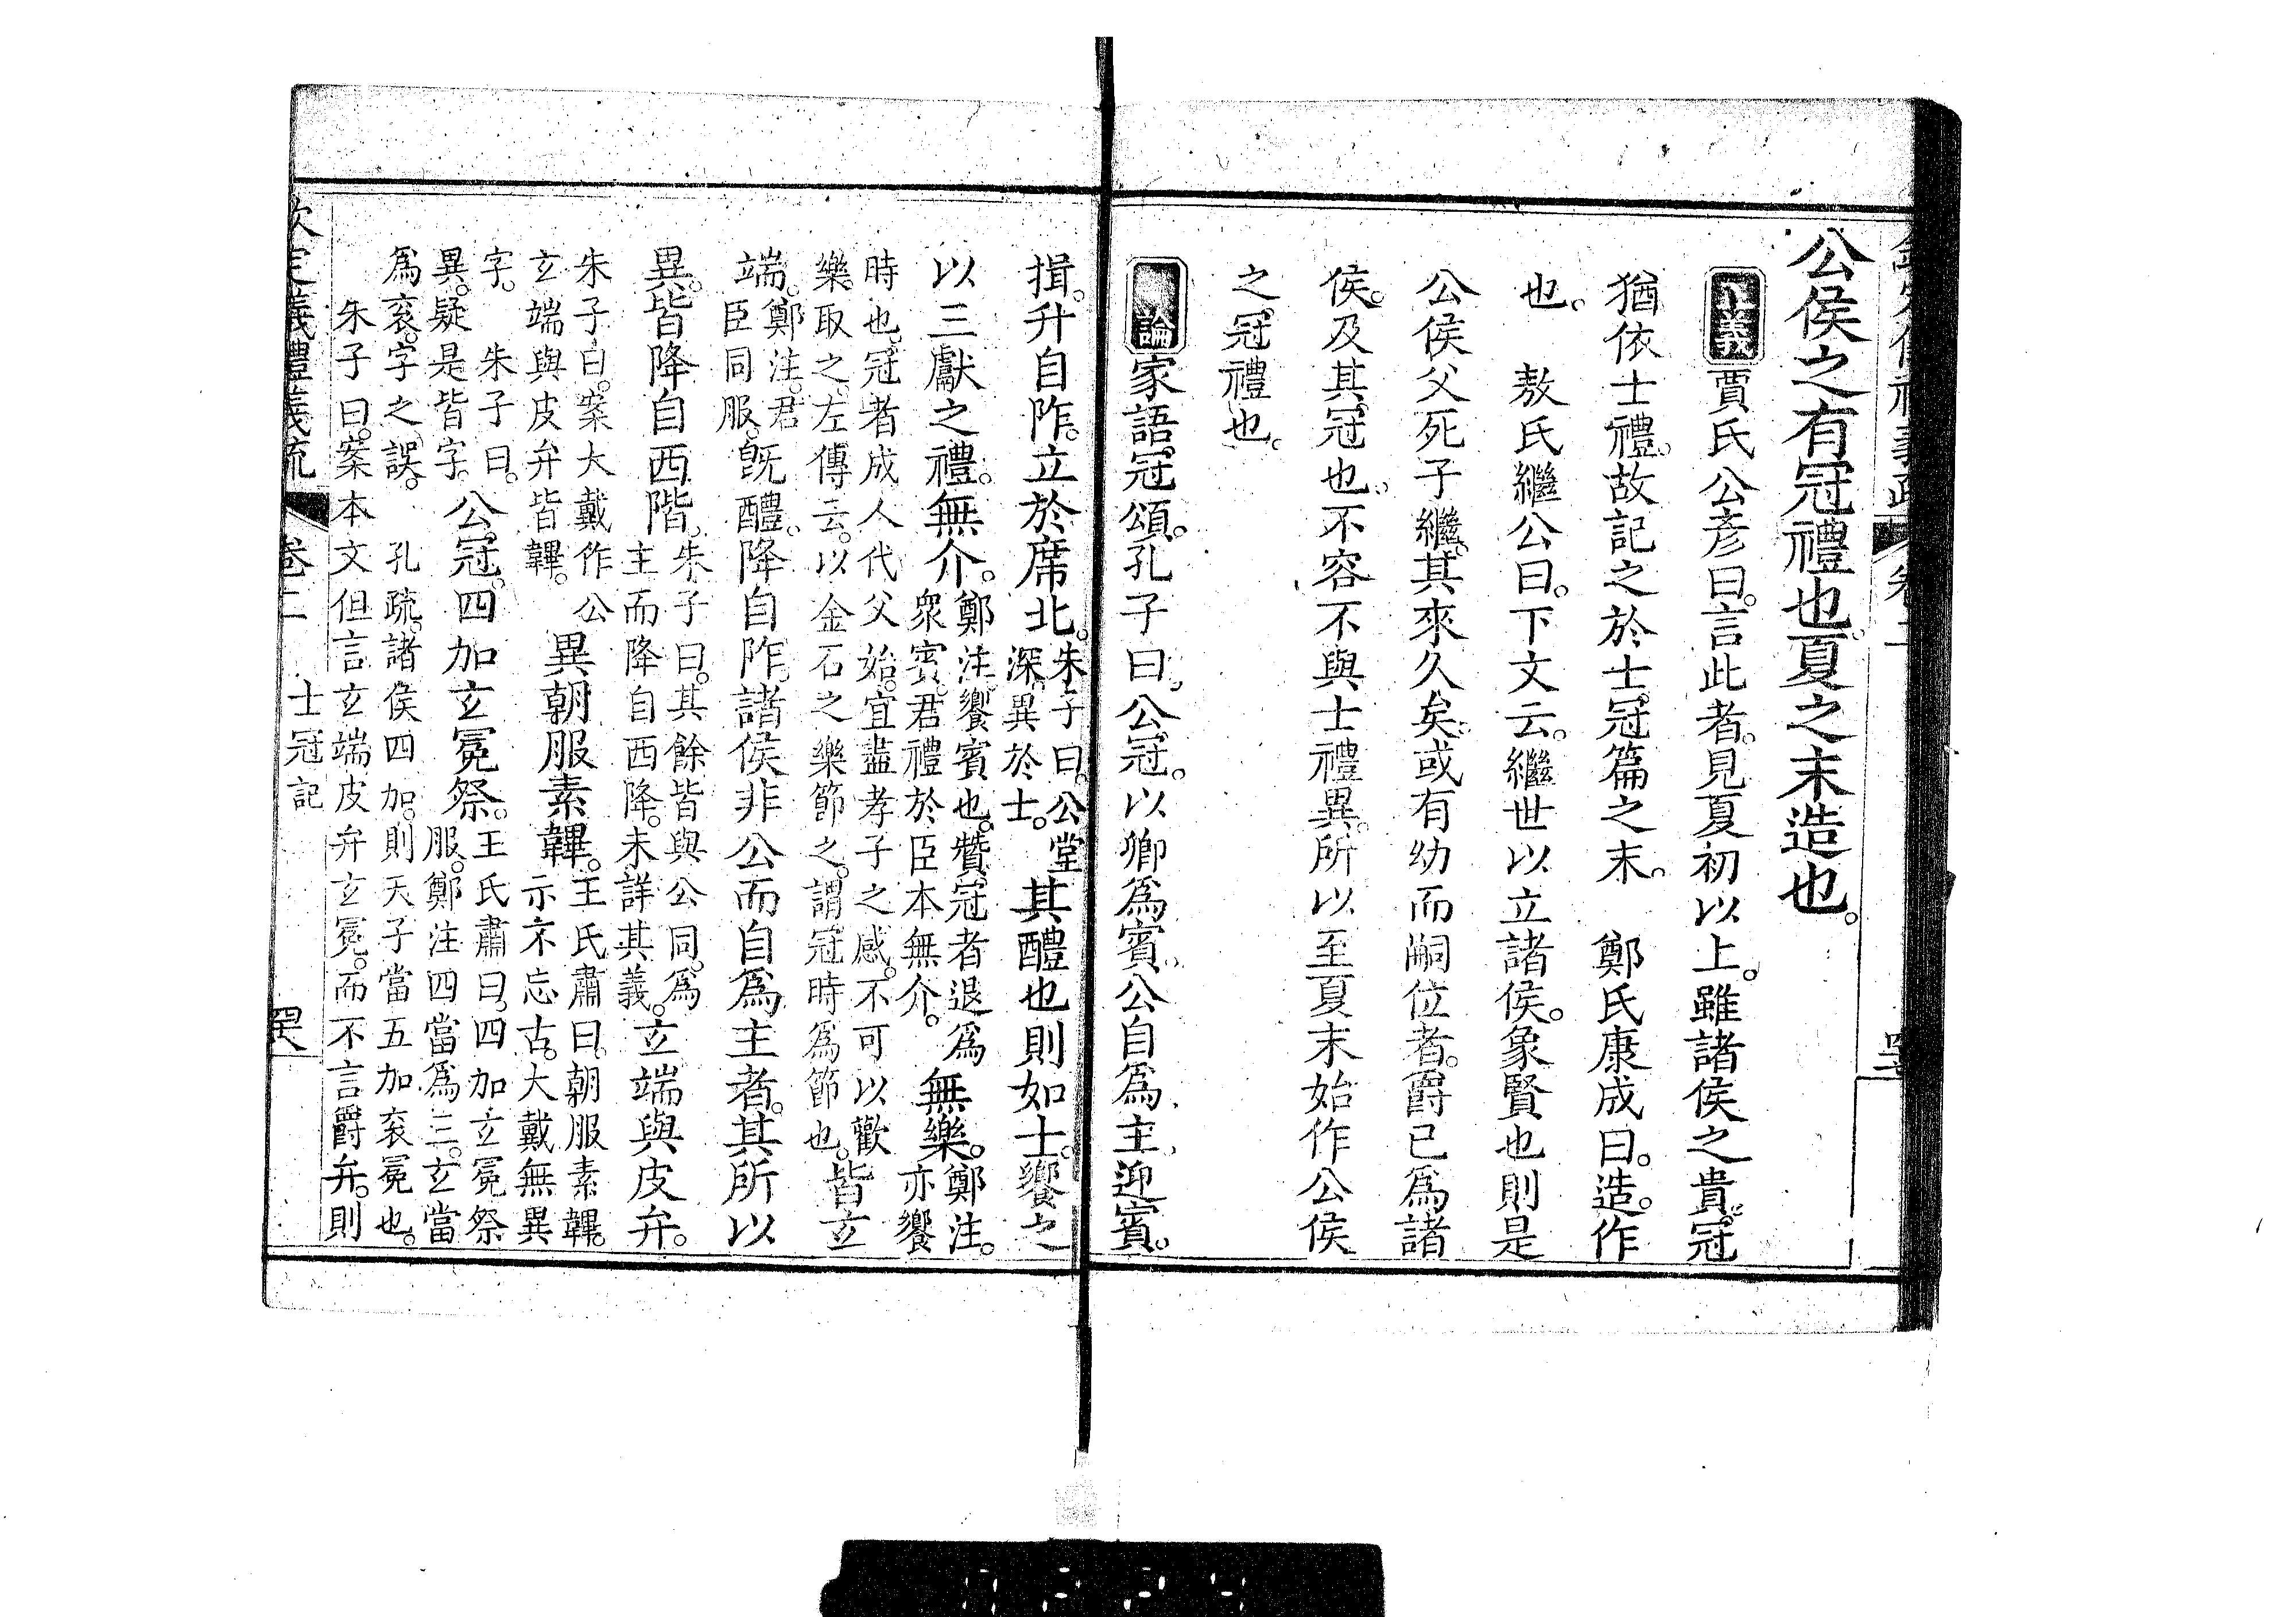 公侯之有冠禮也。夏之末造也。
義賈氏公彥曰。言此者。見夏初以上。雖諸侯之貴。冠
猶依士禮。故記之於士冠篇之末。　鄭氏康成曰。造。作
也。　敖氏繼公曰。下文云。繼世以立諸侯。象賢也。則是
公侯父死子繼。其來久矣。或有幼而嗣位者。爵已爲諸
侯。及其冠也。不容不與士禮異。所以至夏末始作公侯
之冠禮也。
論家語冠頌。孔子曰。公冠。以卿爲賓。公自爲主。迎賓。
揖。升自阼。立於席北。朱子曰。公堂
深。異於士。其醴也則如士。饗之
以三獻之禮。無介。鄭注。饗賓也。贊冠者退爲
衆賓。君禮於臣本無介。無樂。鄭注。
亦饗
時也。冠者成人代父始。宜盡孝子之感。不可以歡
樂取之。左傳云。以金石之樂節之。謂冠時爲節也。皆玄
端。鄭注。君
臣同服。旣醴。降自阼。諸侯非公而自爲主者。其所以
異。皆降自西階。朱子曰。其餘皆與公同。爲
主而降自西降。未詳其義。玄端與皮弁。
朱子曰。案大戴作公
玄端與皮弁皆韠。異朝服素韠。王氏肅曰。朝服素韠。
示不忘古。大戴無異
字。　朱子曰。
異。疑是皆字。公冠。四加玄冕祭。王氏肅曰。四加玄冕祭
服。鄭注四當爲三。玄當
爲衮。字之誤。　孔疏。諸侯四加。則天子當五加衮冕也。
朱子曰。案本文但言玄端皮弁玄冕。而不言爵弁。則
欽定義禮義疏　卷二　士冠記